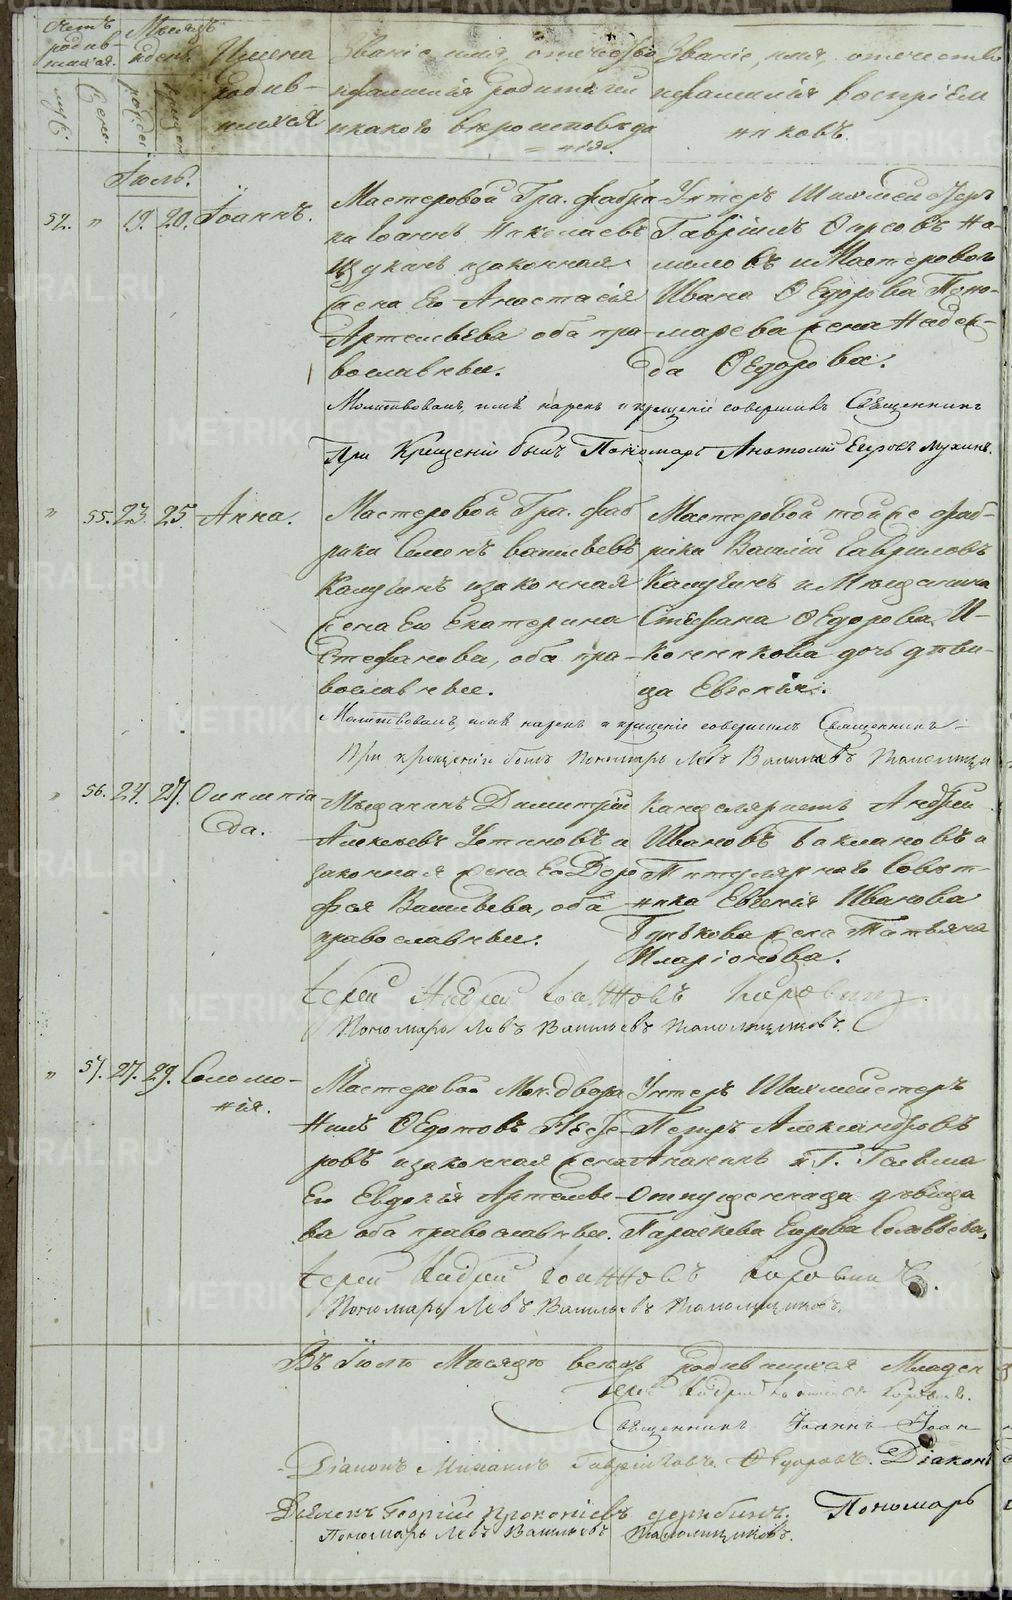 Счетъ родив-шихся.
Мѣсяцъ и день
Имена родив-шихся
Званіе, имя, отечество и фамилія родителей и какого вѣроисповѣданія.
Званіе, имя, отечество и фамилія воспріемниковъ.
муж.
жен.
Іюль.
52. " 19. 20. Іоаннъ.
Мастеровой Гра. фабри-
ки Іоаннъ Николаевъ
и законная
жена Его Анастасія
Артемьева оба пра-
вославные.
Унтеръ Шихмейстеръ
Гавріилъ
и Мастероваго
Ивана Ѳедорова Поно-
марева жена Надеж-
да Ѳедорова.
Молитвовалъ, имя нарекъ и крещеніе совершилъ Священникъ
При Крещеніи былъ Пономарь Анатолій Егоровъ Мухинъ.
" 55. 23. 25 Анна.
Мастеровой Гра. фаб-
рики Семенъ Васильевъ
Калугинъ и законная
жена Его Екатерина
Стефанова, оба пра-
вославные.
Мастеровой той же фаб-
рики Василій Гавриловъ
Калугинъ и Мѣщанина
Стефана Ѳедорова И-
конникова дочь дѣви-
ца Евгенія.
Молитвовалъ, имя нарекъ и крещеніе совершилъ Священникъ
При крещеніи былъ Пономарь Левъ Васильевъ
" 56. 24. 27. Олимпіа-
да.
Мѣщанинъ Димитрій
Алексѣевъ Устиновъ и
законная жена Его Доро-
фея Васильева, оба
православные.
Канцеляристъ Андрей
Ивановъ Баклановъ и
Титулярнаго Совѣт-
ника Евгенія Иванова
жена Татьяна
Иларіонова.
Іерей Андрей Іоанновъ
Пономарь Левъ Васильевъ
" 57. 27. 29. Соломо-
нія.
Мастеровой Мон. двора
Нилъ Ѳедотовъ
ровъ и законная жена
Его Евдокія Артемье-
ва оба православные.
Унтеръ Шихмейстеръ
Петръ Александровъ
Ананьинъ и Г.
Отпущенница дѣвица
Параскева Егорова Соловьева.
Іерей Андрей Іоанновъ
Пономарь Левъ Васильевъ
Въ Іюлѣ Мѣсяцѣ всѣхъ родившихся Младен
Іерей Андрей Іоанновъ
Священникъ Іоаннъ Іоан
Діаконъ Михаилъ Гавриловъ Ѳедоровъ. Діаконъ
Дьячекъ Георгій Прокопіевъ Пономарь
Пономарь Левъ Васильевъ